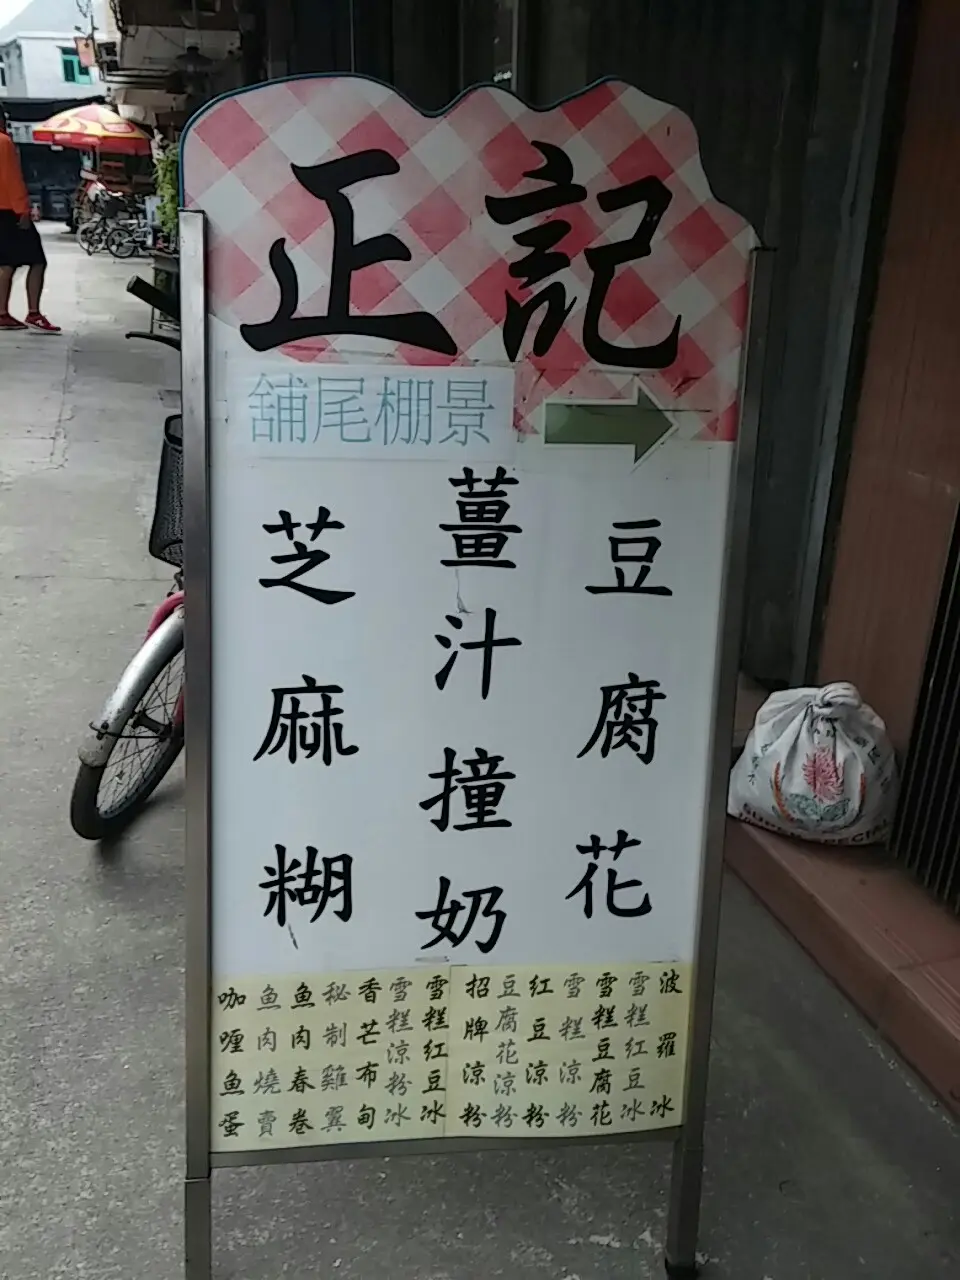 正記
舖尾棚景
豆腐花
薑汁撞奶
芝麻糊
波羅冰
雪糕红豆冰
雪糕豆腐花
雪糕涼粉
红豆涼粉
豆腐花涼粉
招牌涼粉
雪糕红豆冰
雪糕涼粉冰
香芒布甸
秘制雞翼
鱼肉春卷
鱼肉燒賣
咖喱鱼蛋
SUPER SPECIAL